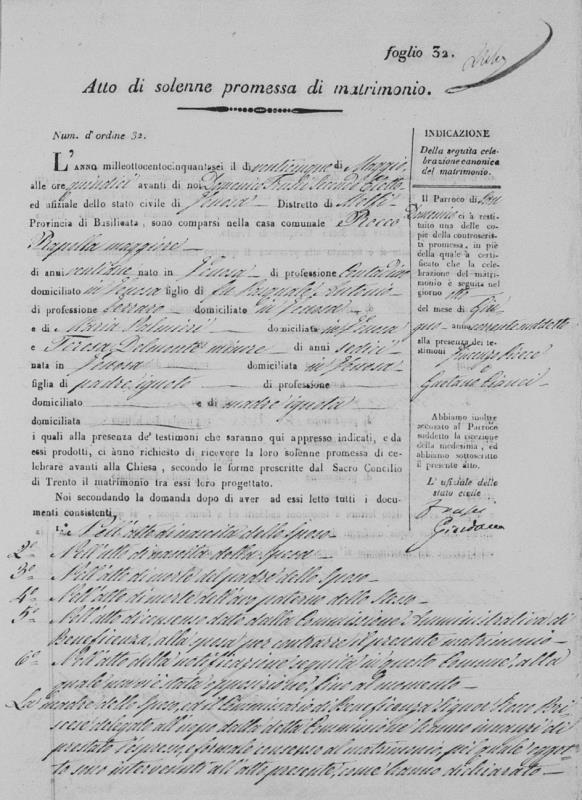 foglio 32.
Atto di solenne promessa di matrimonio.
Num. d'ordine 32.
L'ANNO milleottocentocinquantasei il dì venticinque di Maggio
alle ore quindici avanti di noi Domenico
ed ufiziale dello stato civile di Venosa Distretto di Melfi
Provincia di Basilicata, sono comparsi nella casa comunale Rocco
Rapulla maggiore
di anni ventidue nato in Venosa di professione Contadino
domiciliato in Venosa figlio di fu Pasquale Antonio
di professione domiciliato in Venosa
e di Maria Palmieri domiciliata in Venosa
e Teresa Delmonte minore di anni sedici
nata in Venosa domiciliata in Venosa
figlia di padre ignoto di professione
domiciliato e di madre ignota
domiciliata
i quali alla presenza de' testimoni che saranno qui appresso indicati, e da
essi prodotti, ci anno richiesto di ricevere la loro solenne promessa di ce-
lebrare avanti alla Chiesa, secondo le forme prescritte dal Sacro Concilio
di Trento il matrimonio tra essi loro progettato.
Noi secondando la domanda dopo di aver ad essi letto tutti i docu
menti consistenti.
1º Nell'atto di nascita dello Sposo
2º Nell'atto di nascita della Sposa
3º Nell'atto di morte del padre dello Sposo
4º Nell'atto di morte dell'avo paterno dello Stesso
5º Nell'atto di consenso dato dalla Commissione Amministrativa di
Beneficenza, alla sposa per contrarre il presente matrimonio
6º Nell'atto della notificazione seguita in questo Comune, alla
quale non vi è stata opposizione fino al momento
La madre dello Sposo, ed il Commissario di Beneficenza Signor
delegato all'uopo dalla detta Commissione hanno innanzi di
prestato l'espresso, e formale consenso al matrimonio, pel quale ogget-
to sono intervenuti all'atto presente, come hanno dichiarato
INDICAZIONE
Della seguita cele-
brazione canonica
del matrimonio.
Il Parroco di San
ci à resti-
tuito una delle co-
pie della controscrit-
ta promessa, in piè
della quale à certi-
ficato che la cele-
brazione del matri-
monio è seguita nel
giorno otto
del mese di Giu
gno anno corrente
alla presenza dei te-
stimoni
e
Gaetano
Abbiamo inoltre
accusato al Parroco
suddetto la ricezione
della medesima, ed
abbiamo sottoscritto
il presente atto.
L' ufiziale dello
stato civile